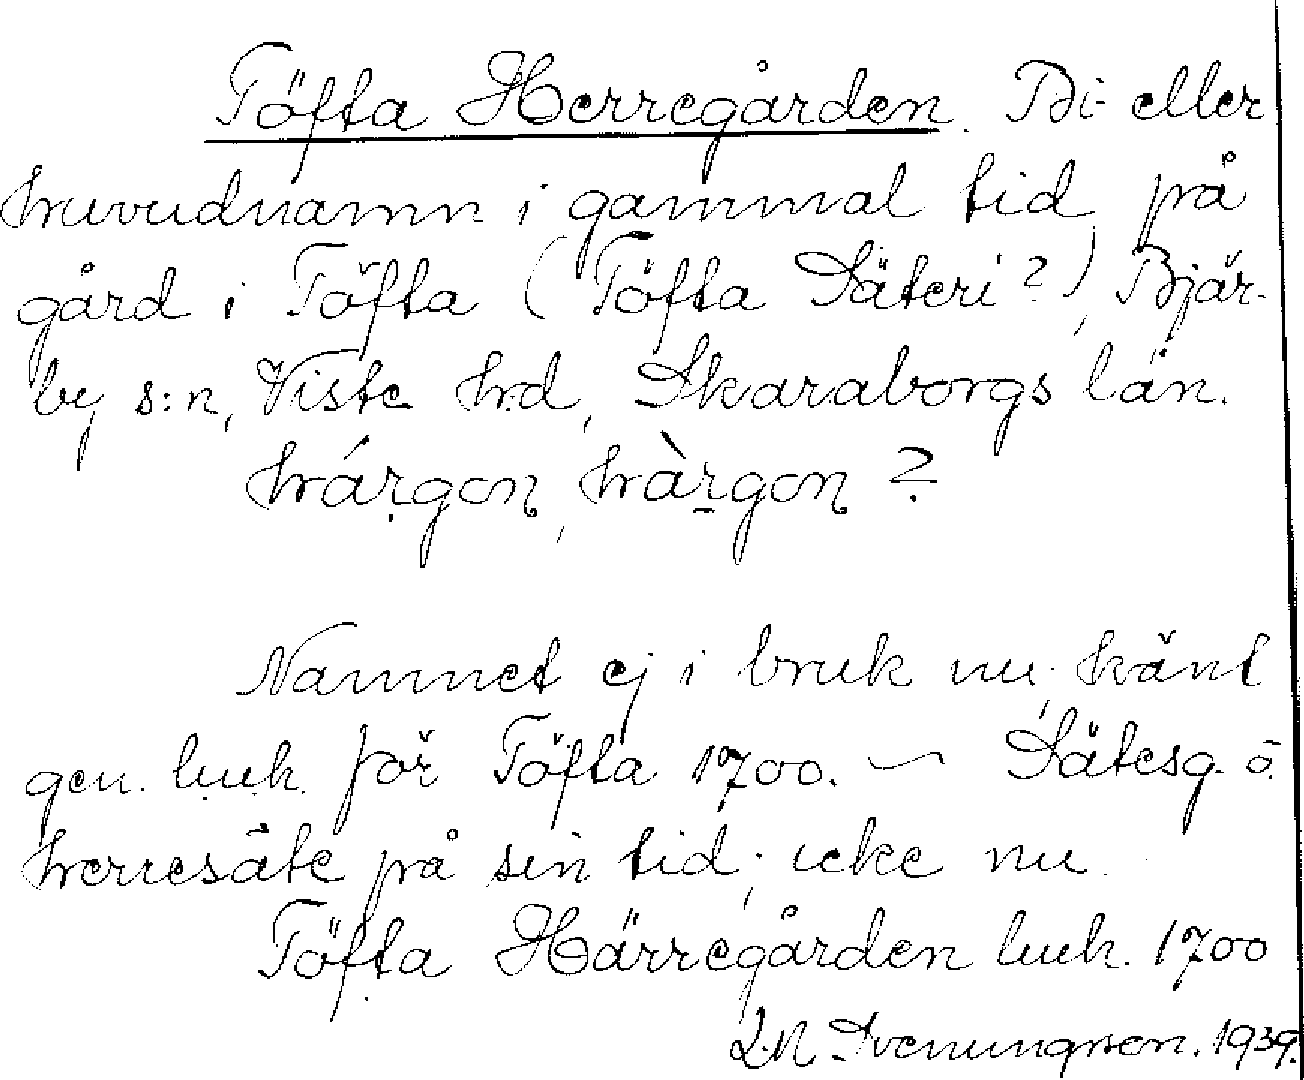 Töfta Herregården. Bi- eller
huvudnamn i gammal tid på
gård i Töfta (Töfta Säteri?), Bjär-
by s:n, Viste hd, Skaraborgs län.
hárgon, hàrgon ?
Namnet ej i bruk nu; känt
gen. luk. för Töfta 1700. — Sätesg. o.
herresäte på sin tid; icke nu.
Töfta Härregården luk. 1700
L.N. Svenungsson. 1939.